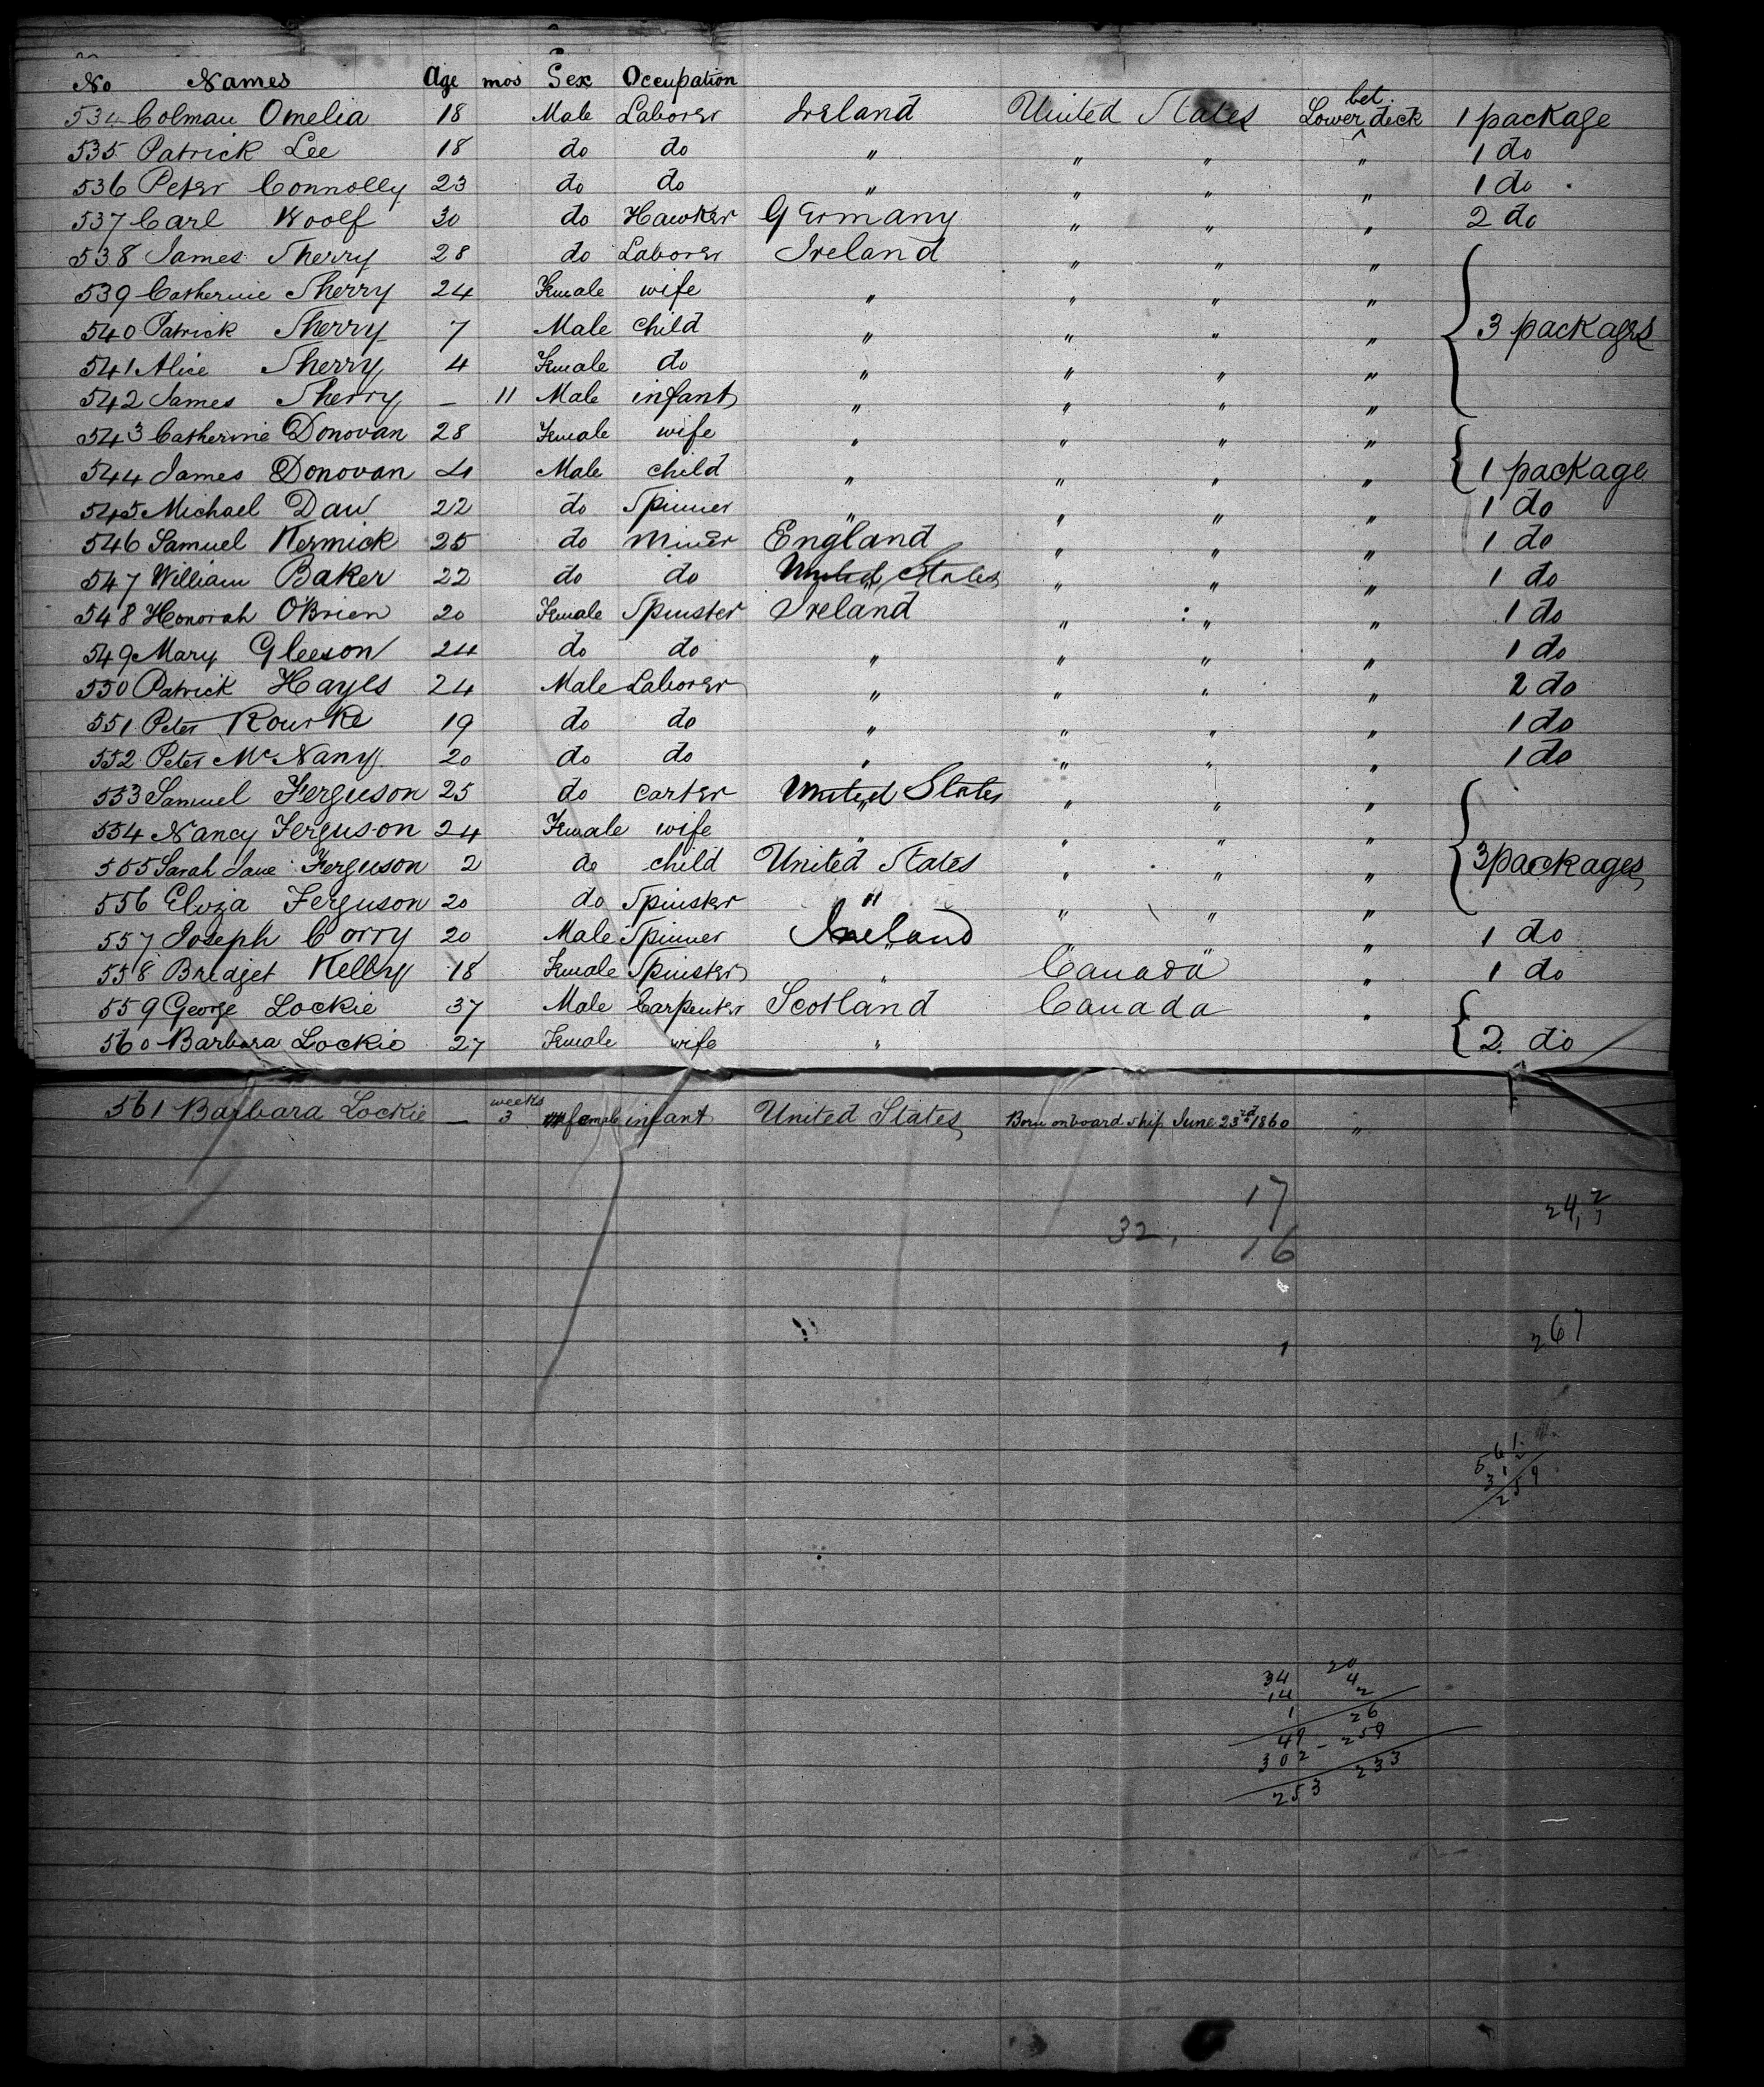 No Names Age mos Sex Occupation
bet.
534 Colman Omelia 18 Male Laborer Ireland United States Lower ^ deck 1 package
535 Patrick Lee 18 do do " " " " 1 do
536 Peter Connolly 23 do do " " " " 1 do
537 Carl Woolf 30 do Hawker Germany " " " 2 do
538 James Sherry 28 do Laborer Ireland " " "
539 Catherine Sherry 24 Female wife " " " "
540 Patrick Sherry 7 Male child " " " " 3 packages
541 Alice Sherry 4 Female do " " " "
542 James Sherry — 11 Male infant " " " "
543 Catherine Donovan 28 Female wife " " " "
544 James Donovan 4 Male child " " " " 1 package
545 Michael Daw 22 do Spinner " " " " 1 do
546 Samuel Kermick 25 do Miner England " " " 1 do
547 William Baker 22 do do United States " " " 1 do
548 Honorah O'Brien 20 Female Spinster Ireland " " " 1 do
549 Mary Gleeson 24 do do " " " " 1 do
550 Patrick Hayes 24 Male Laborer " " " " 2 do
551 Peter Rourke 19 do do " " " " 1 do
552 Peter McNany 20 do do " " " " 1 do
553 Samuel Ferguson 25 do carter United States " " "
554 Nancy Ferguson 24 Female wife " " " "
555 Sarah Jane Ferguson 2 do child United States " " " 3 packages
556 Eliza Ferguson 20 do Spinster " " " "
557 Joseph Corry 20 Male Spinner Ireland " " " 1 do
558 Bridget Kelby 18 Female Spinster " Canada " 1 do
559 George Lockie 37 Male Carpenter Scotland Canada "
560 Barbara Lockie 27 Female wife " 2 do
weeks
561 Barbara Lockie — 3 female infant United States Born onboard ship June 23rd 1860 "
17
32, 16
267
561
312
259
34 20
14 4
1 2
49 26
302 - 259
253 233